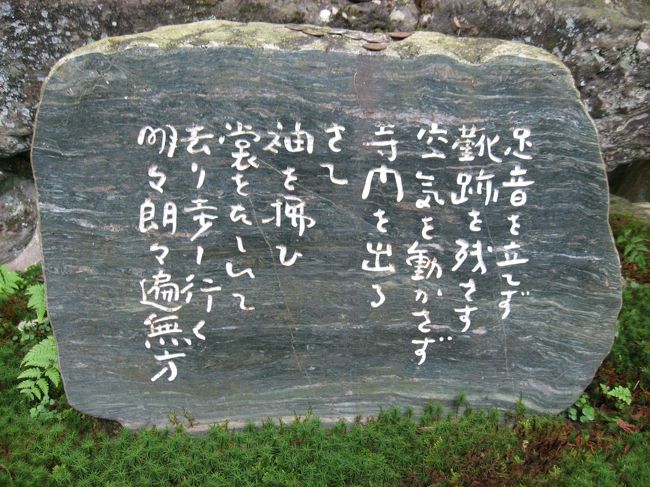 足音を立てず
靴跡を残さす
空気を動かさず
寺内を出る
さて
袖を拂ひ
裳をたゝいて
去り歩ー行く
明々朗々遍無方